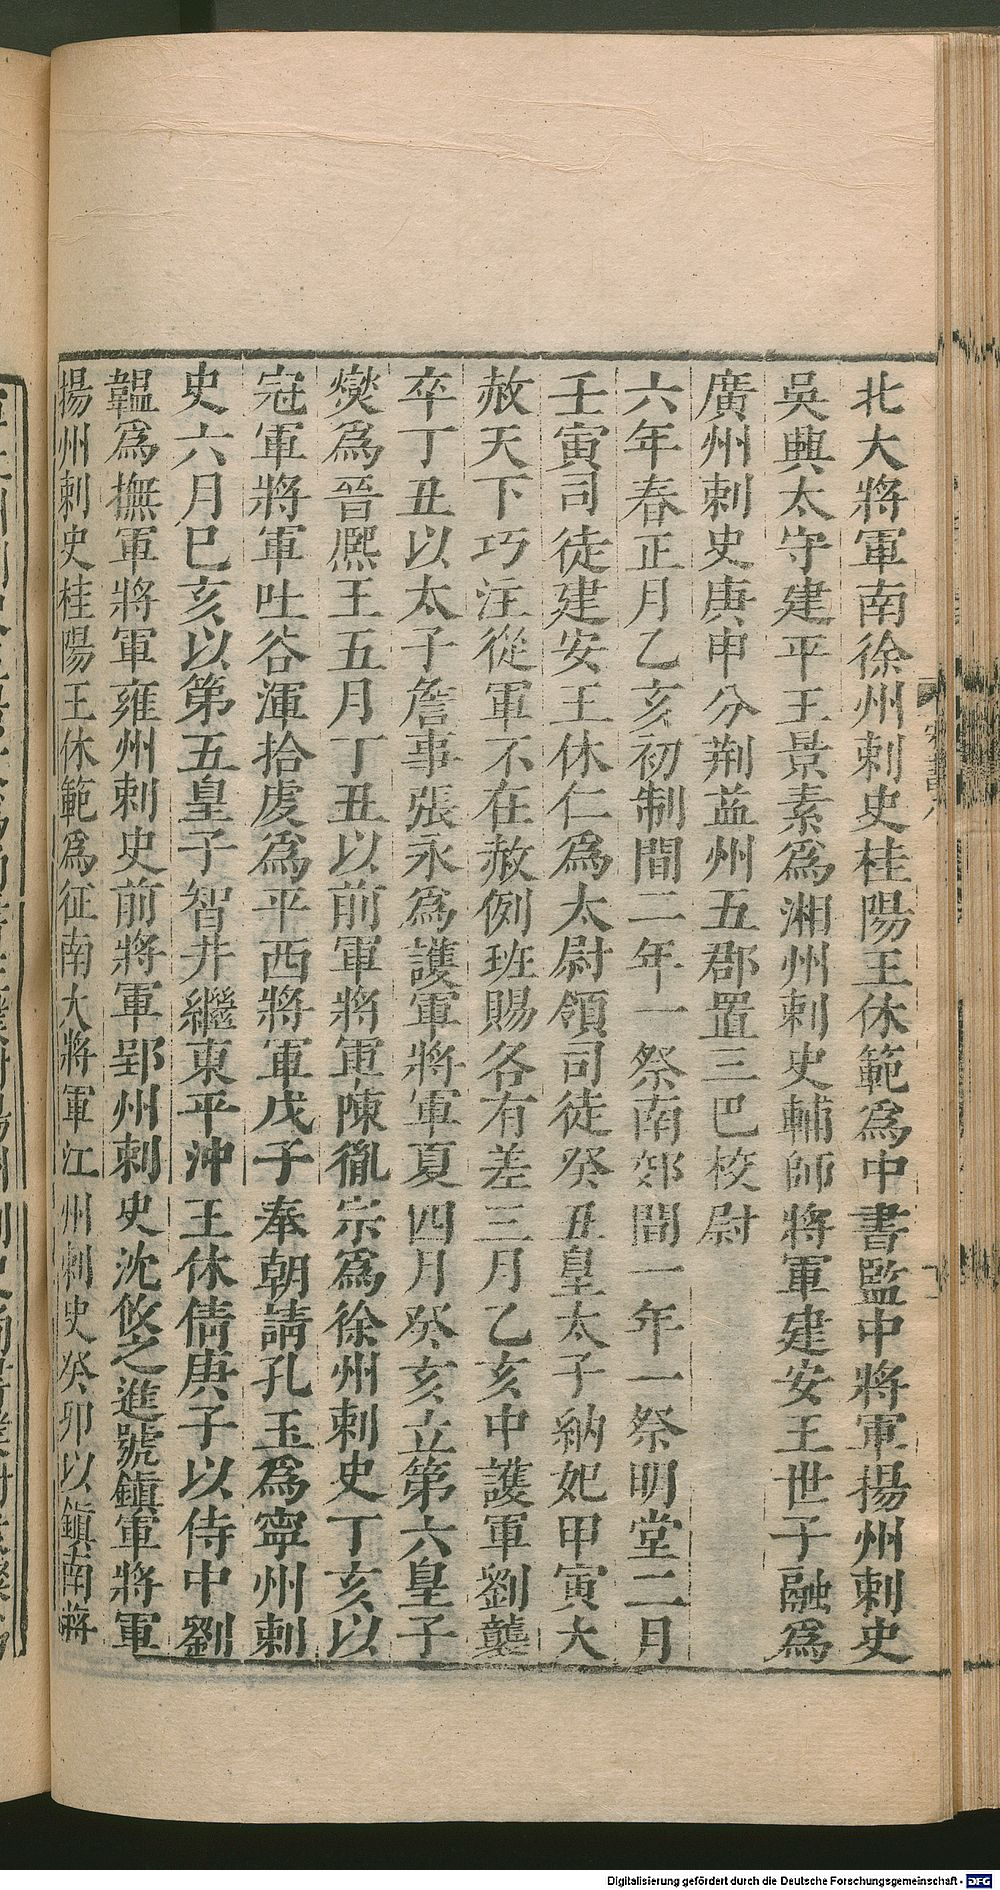 北大將軍南徐州刺史桂陽王休範爲中書監中將軍揚州刺史
吳興太守建平王景素爲湘州刺史輔師將軍建安王世子融爲
廣州刺史庚申分荆益州五郡置三巴校尉
六年春正月乙亥初制間二年一祭南郊間一年一祭明堂二月
壬寅司徒建安王休仁爲太尉領司徒癸丑皇太子納妃甲寅大
赦天下巧注從軍不在赦例班賜各有差三月乙亥中護軍劉襲
卒丁丑以太子詹事張永爲護軍將軍夏四月癸亥立第六皇子
燮爲晉熈王五月丁丑以前軍將軍陳胤宗爲徐州刺史丁亥以
冠軍將軍吐谷渾拾虔爲平西將軍戊子奉朝請孔玉爲寧州刺
史六月巳亥以第五皇子智井繼東平沖王休倩庚子以侍中劉
韞爲撫軍將軍雍州刺史前將軍郢州刺史沈攸之進號鎮軍將軍
揚州刺史桂陽王休範爲征南大將軍江州刺史癸卯以鎮南將
Digitalisierung gefördert durch die Deutsche Forschungsgemeinschaft - DFG